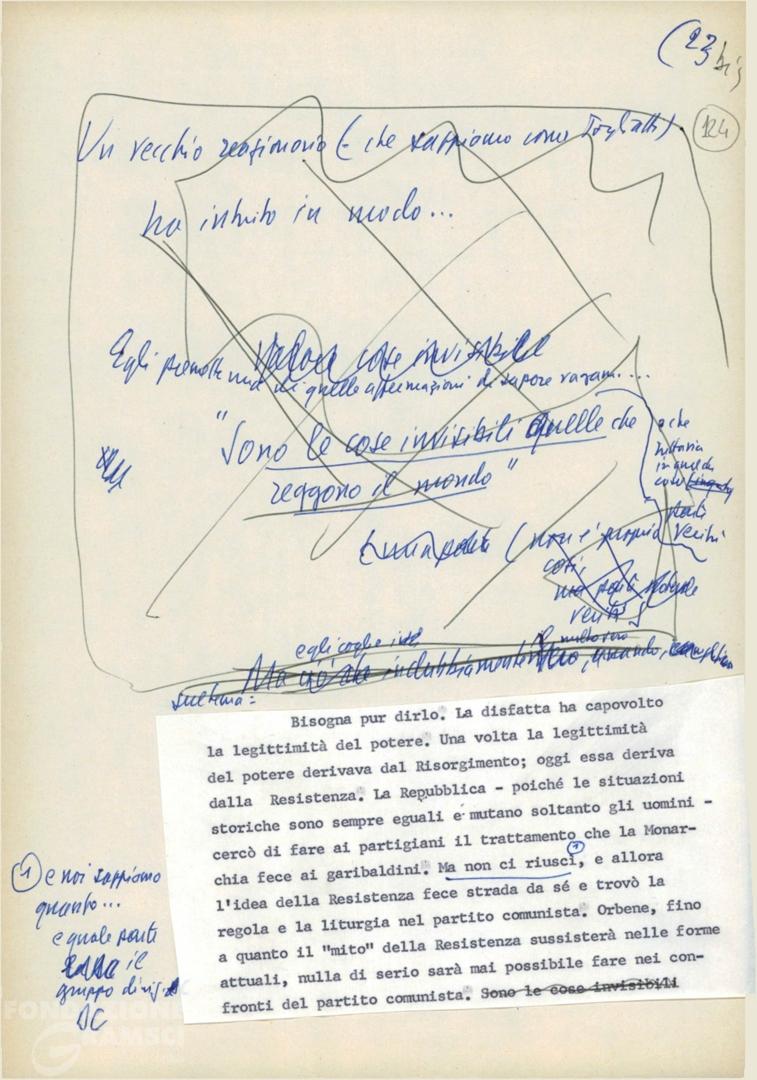 (23 bis
124
Un vecchio reazionario (- che sappiamo come Togliatti)
ha intuito in modo...
cose invisibile
Egli premette una di quelle affermazioni di sapore
"Sono le cose invisibili quelle che
reggono il mondo"
o che
tuttavia
in qualche
cosa
verità
(non è proprio
così,
ma
verità
egli coglie
molto vero
Ma ciò che indubbiamente vero, quando,
Bisogna pur dirlo. La disfatta ha capovolto
la legittimità del potere. Una volta la legittimità
del potere derivava dal Risorgimento; oggi essa deriva
dalla Resistenza. La Repubblica - poiché le situazioni
storiche sono sempre eguali e mutano soltanto gli uomini -
cercò di fare ai partigiani il trattamento che la Monar-
chia fece ai garibaldini. Ma non ci riuscì (1), e allora
l'idea della Resistenza fece strada da sé e trovò la
regola e la liturgia nel partito comunista. Orbene, fino
a quanto il "mito" della Resistenza sussisterà nelle forme
attuali, nulla di serio sarà mai possibile fare nei con-
fronti del partito comunista. Sono le cose invisibili
(1) e noi sappiamo
quanto...
e quale parte
il
gruppo dirig.
DC
FONDAZIONE
GRAMSCI